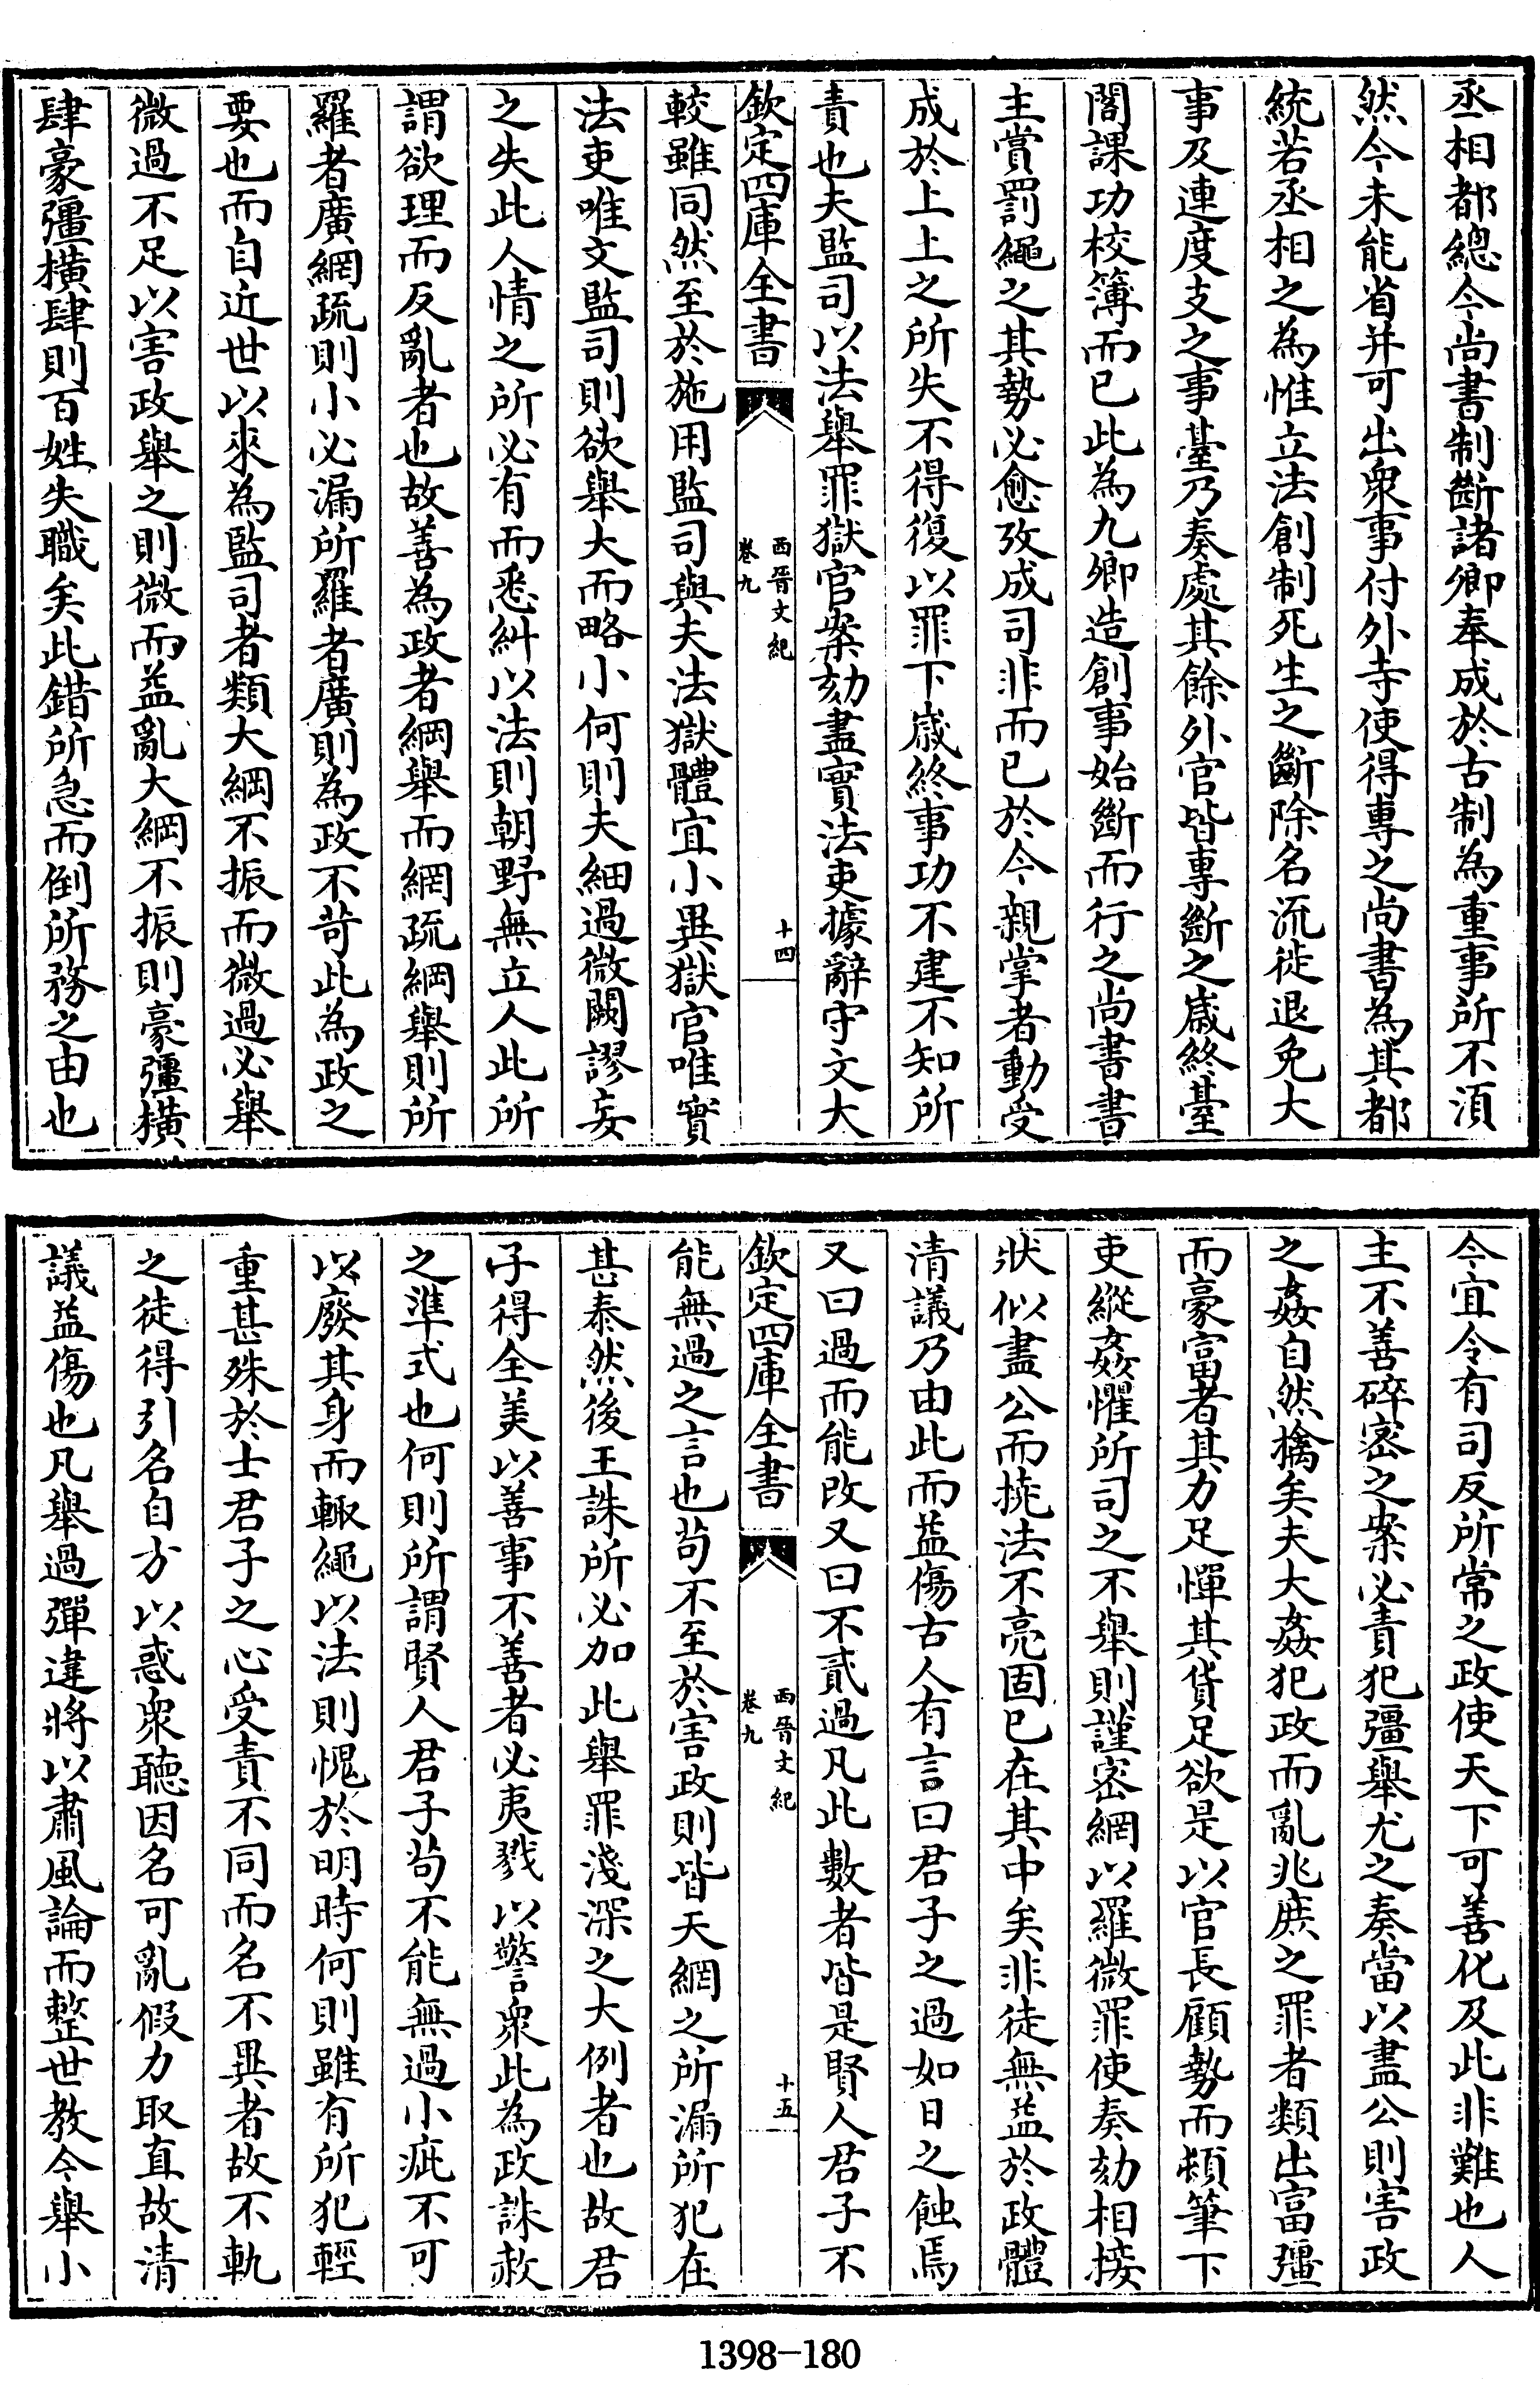 丞相都總今尚書制斷諸卿奉成於古制為重事所不須
然今未能省并可出衆事付外寺使得專之尚書為其都
統若丞相之為惟立法創制死生之斷除名流徙退免大
事及連度支之事臺乃奏處其餘外官皆專斷之歲終臺
閣課功校簿而已此為九卿造創事始斷而行之尚書書
主賞罰繩之其勢必愈攷成司非而已於今親掌者動受
成於上上之所失不得復以罪下歲終事功不建不知所
責也夫監司以法舉罪獄官案劾盡實法吏據辭守文大
欽定四庫全書
西晉文紀
卷九
十四
較雖同然至於施用監司與夫法獄體宜小異獄官唯實
法吏唯文監司則欲舉大而略小何則夫細過微闕謬妄
之失此人情之所必有而悉糾以法則朝野無立人此所
謂欲理而反亂者也故善為政者綱舉而網疏綱舉則所
羅者廣網疏則小必漏所羅者廣則為政不苛此為政之
要也而自近世以來為監司者類大綱不振而微過必舉
微過不足以害政舉之則微而益亂大綱不振則豪彊橫
肆豪彊橫肆則百姓失職矣此錯所急而倒所務之由也
今宜令有司反所常之政使天下可善化及此非難也人
主不善碎密之案必責犯彊舉尤之奏當以盡公則害政
之姦自然擒矣夫大姦犯政而亂兆庶之罪者類出富彊
而豪富者其力足憚其貨足欲是以官長顧勢而頓筆下
吏縱姦懼所司之不舉則謹密網以羅微罪使奏劾相接
狀似盡公而撓法不亮固已在其中矣非徒無益於政體
清議乃由此而益傷古人有言曰君子之過如日之蝕焉
又曰過而能改又曰不貳過凡此數者皆是賢人君子不
欽定四庫全書
西晉文紀
卷九
十五
能無過之言也苟不至於害政則皆天網之所漏所犯在
甚泰然後王誅所必加此舉罪淺深之大例者也故君
子得全美以善事不善者必夷戮以警衆此為政誅赦
之準式也何則所謂賢人君子苟不能無過小疵不可
以廢其身而輙繩以法則愧於明時何則雖有所犯輕
重甚殊於士君子之心受責不同而名不異者故不軌
之徒得引名自方以惑衆聽因名可亂假力取直故清
議益傷也凡舉過彈違將以肅風論而整世教今舉小
1398-180